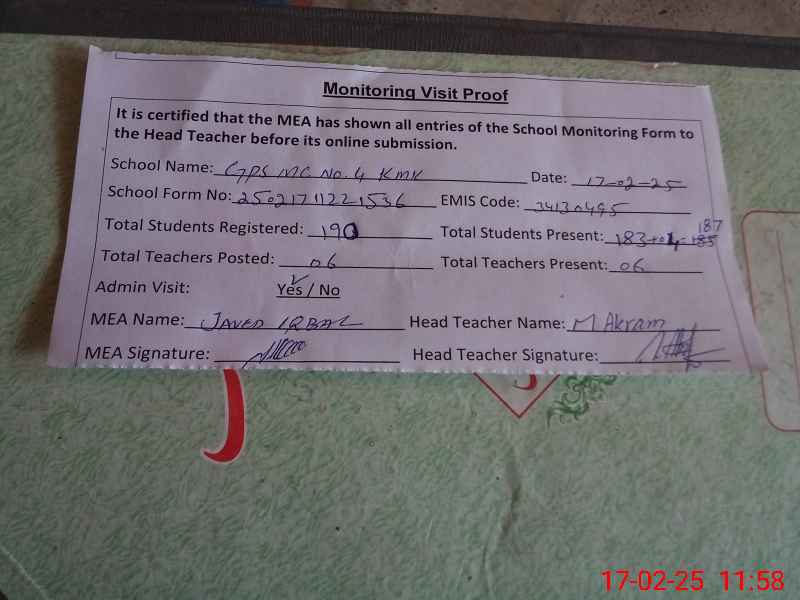 Monitoring Visit Proof
It is certified that the MEA has shown all entries of the School Monitoring Form to
the Head Teacher before its online submission.
School Name: GPS MC No. 4 KMK Date: 17-02-25
School Form No: 25021711221536 EMIS Code: 34130495
187
Total Students Registered: 190 Total Students Present: 183+04=185
Total Teachers Posted: 06 Total Teachers Present: 06
Admin Visit: Yes / No
MEA Name: JAVED IQBAL Head Teacher Name: M Akram
MEA Signature: Head Teacher Signature:
17-02-25 11:58